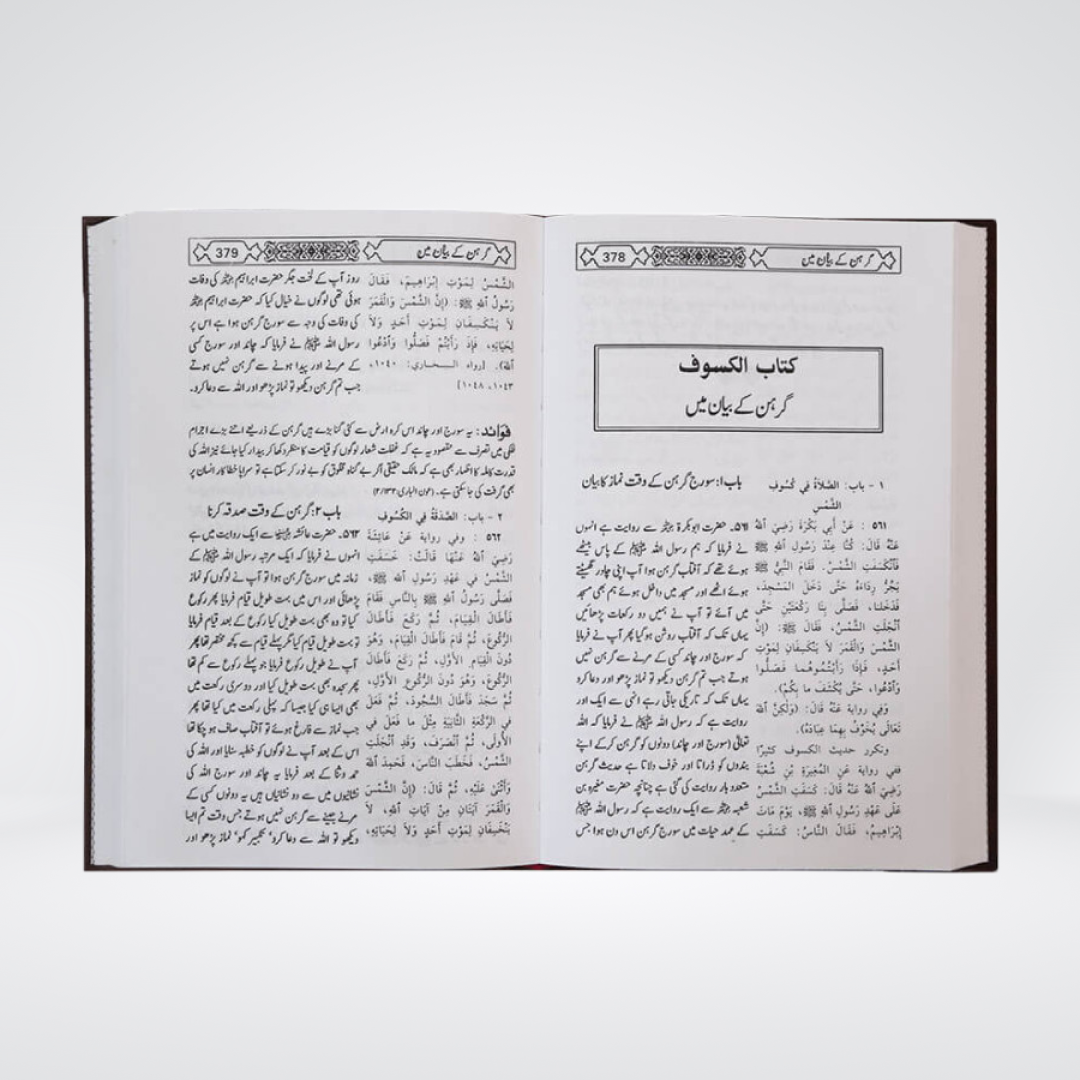 گرہن کے بیان میں
378
كتاب الكسوف
گرہن کے بیان میں
١ - باب: الصَّلاَةُ فِي كُسُوفِ
الشَّمْسِ
٥٦١ : عَنْ أَبِي بَكْرَةَ رَضِيَ اللهُ
عَنْهُ قَالَ: كُنَّا عِنْدَ رَسُولِ اللهِ ﷺ
فَانْكَسَفَتِ الشَّمْسُ. فَقَامَ النَّبِيُّ ﷺ
يَجُرُّ رِدَاءَهُ حَتَّى دَخَلَ المَسْجِدَ،
فَدَخَلْنَا، فَصَلَّى بِنَا رَكْعَتَيْنِ حَتَّى
انْجَلَتِ الشَّمْسُ، فَقَالَ ﷺ: (إِنَّ
الشَّمْسَ وَالْقَمَرَ لاَ يَنْكَسِفَانِ لِمَوْتِ
أَحَدٍ، فَإِذَا رَأَيْتُمُوهُمَا فَصَلُّوا
وَادْعُوا، حَتَّى يُكْشَفَ ما بِكُمْ).
وَفِي رواية عَنْهُ قَالَ: (وَلٰكِنَّ اللهَ
تَعَالَى يُخَوِّفُ بِهِمَا عِبَادَهُ).
وتكرر حديث الكسوف كثيرًا
ففي رواية عَنِ المُغِيرَةِ بْنِ شُعْبَةَ
رَضِيَ اللهُ عَنْهُ قَالَ: كَسَفَتِ الشَّمْسُ
عَلَى عَهْدِ رَسُولِ اللهِ ﷺ، يَوْمَ مَاتَ
إِبْرَاهِيمُ، فَقَالَ النَّاسُ: كَسَفَتِ
باب ۱: سورج گرہن کے وقت نماز کا بیان
۵۶۱۔ حضرت ابوبکرۃ رضی اللہ عنہ سے روایت ہے انہوں
نے فرمایا کہ ہم رسول اللہ ﷺ کے پاس بیٹھے
ہوئے تھے کہ آفتاب گرہن ہوا آپ اپنی چادر گھسیٹتے
ہوئے اٹھے اور مسجد میں داخل ہوئے ہم بھی مسجد
میں آئے تو آپ نے ہمیں دو رکعات پڑھائیں
یہاں تک کہ آفتاب روشن ہوگیا پھر آپ نے فرمایا
کہ سورج اور چاند کسی کے مرنے سے گرہن نہیں
ہوتے جب تم گرہن دیکھو تو نماز پڑھو اور دعا کرو
یہاں تک کہ تاریکی جاتی رہے انہی سے ایک اور
روایت ہے کہ رسول اللہ ﷺ نے فرمایا کہ اللہ
تعالٰی (سورج اور چاند) دونوں کو گرہن کرکے اپنے
بندوں کو ڈراتا اور خوف دلاتا ہے حدیث گرہن
متعدد بار روایت کی گئی ہے چنانچہ حضرت مغیرہ بن
شعبہ رضی اللہ عنہ سے ایک روایت ہے کہ رسول اللہ ﷺ
کے عہد حیات میں سورج گرہن اس دن ہوا جس
گرہن کے بیان میں
379
الشَّمْسُ لِمَوْتِ إِبْرَاهِيمَ، فَقَالَ
رَسُولُ اللهِ ﷺ: (إِنَّ الشَّمْسَ وَالْقَمَرَ
لاَ يَنْكَسِفَانِ لِمَوْتِ أَحَدٍ وَلاَ
لِحَيَاتِهِ، فَإِذَا رَأَيْتُمْ فَصَلُّوا وَادْعُوا
اللهَ). [رواه البخاري: ١٠٤٠،
١٠٤٣، ١٠٤٨]
روز آپ کے لخت جگر حضرت ابراہیم رضی اللہ عنہ کی وفات
ہوئی تھی لوگوں نے خیال کیا کہ حضرت ابراہیم رضی اللہ عنہ
کی وفات کی وجہ سے سورج گرہن ہوا ہے اس پر
رسول اللہ ﷺ نے فرمایا کہ چاند اور سورج کسی
کے مرنے اور پیدا ہونے سے گرہن نہیں ہوتے
جب تم گرہن دیکھو تو نماز پڑھو اور اللہ سے دعا کرو۔
فوائد: یہ سورج اور چاند اس کرہ ارض سے کئی گنا بڑے ہیں گرہن کے ذریعے اتنے بڑے اجرام
فلکی میں تصرف سے مقصود یہ ہے کہ غفلت شعار لوگوں کو قیامت کا منظر دکھا کر بیدار کیا جائے نیز اللہ کی
قدرت کاملہ کا اظہار بھی ہے کہ مالک حقیقی اگر بے گناہ مخلوق کو بے نور کر سکتا ہے تو سراپا خطا کار انسان پر
بھی گرفت کی جاسکتی ہے۔ (عون الباری:۲/۱۳۲)
٢ - باب: الصَّدَقَةُ فِي الكُسُوفِ
٥٦٢ : وفي رواية عَنْ عَائِشَةَ
رَضِيَ اللهُ عَنْهَا قَالَتْ: خَسَفَتِ
الشَّمْسُ في عَهْدِ رَسُولِ اللهِ ﷺ،
فَصَلَّى رَسُولُ اللهِ ﷺ بِالنَّاسِ فَقَامَ
فَأَطَالَ الْقِيَامَ، ثُمَّ رَكَعَ فَأَطَالَ
الرُّكُوعَ، ثُمَّ قَامَ فَأَطَالَ الْقِيَامَ، وَهُوَ
دُونَ الْقِيَامِ الأَوَّلِ، ثُمَّ رَكَعَ فَأَطَالَ
الرُّكُوعَ، وَهُوَ دُونَ الرُّكُوعِ الأَوَّلِ،
ثُمَّ سَجَدَ فَأَطَالَ السُّجُودَ، ثُمَّ فَعَلَ
فِي الرَّكْعَةِ الثَّانِيَةِ مِثْلَ ما فَعَلَ فِي
الأُولَى، ثُمَّ انْصَرَفَ، وَقَدِ انْجَلَتِ
الشَّمْسُ، فَخَطَبَ النَّاسَ، فَحَمِدَ اللهَ
وَأَثْنَى عَلَيْهِ، ثُمَّ قَالَ: (إِنَّ الشَّمْسَ
وَالْقَمَرَ آيَتَانِ مِنْ آيَاتِ اللهِ، لاَ
يَنْخَسِفَانِ لِمَوْتِ أَحَدٍ وَلاَ لِحَيَاتِهِ،
باب ۲: گرہن کے وقت صدقہ کرنا
۵۶۲۔ حضرت عائشہ رضی اللہ عنہا سے ایک روایت میں ہے
انہوں نے فرمایا کہ ایک مرتبہ رسول اللہ ﷺ کے
زمانہ میں سورج گرہن ہوا تو آپ نے لوگوں کو نماز
پڑھائی اور اس میں بہت طویل قیام فرمایا پھر رکوع
کیا تو وہ بھی بہت طویل کیا رکوع کے بعد قیام فرمایا
تو بہت طویل قیام کیا مگر پہلے قیام سے کچھ مختصر تھا پھر
آپ نے طویل رکوع فرمایا جو پہلے رکوع سے کم تھا
پھر سجدہ بھی بہت طویل کیا اور دوسری رکعت میں
بھی ایسا ہی کیا جیسا کہ پہلی رکعت میں کیا تھا پھر
جب نماز سے فارغ ہوئے تو آفتاب صاف ہو چکا تھا
اس کے بعد آپ نے لوگوں کو خطبہ سنایا اور اللہ کی
حمد وثنا کے بعد فرمایا یہ چاند اور سورج اللہ کی
نشانیوں میں سے دو نشانیاں ہیں یہ دونوں کسی کے
مرنے جینے سے گرہن نہیں ہوتے جس وقت تم ایسا
دیکھو تو اللہ سے دعا کرو' تکبیر کہو' نماز پڑھو اور